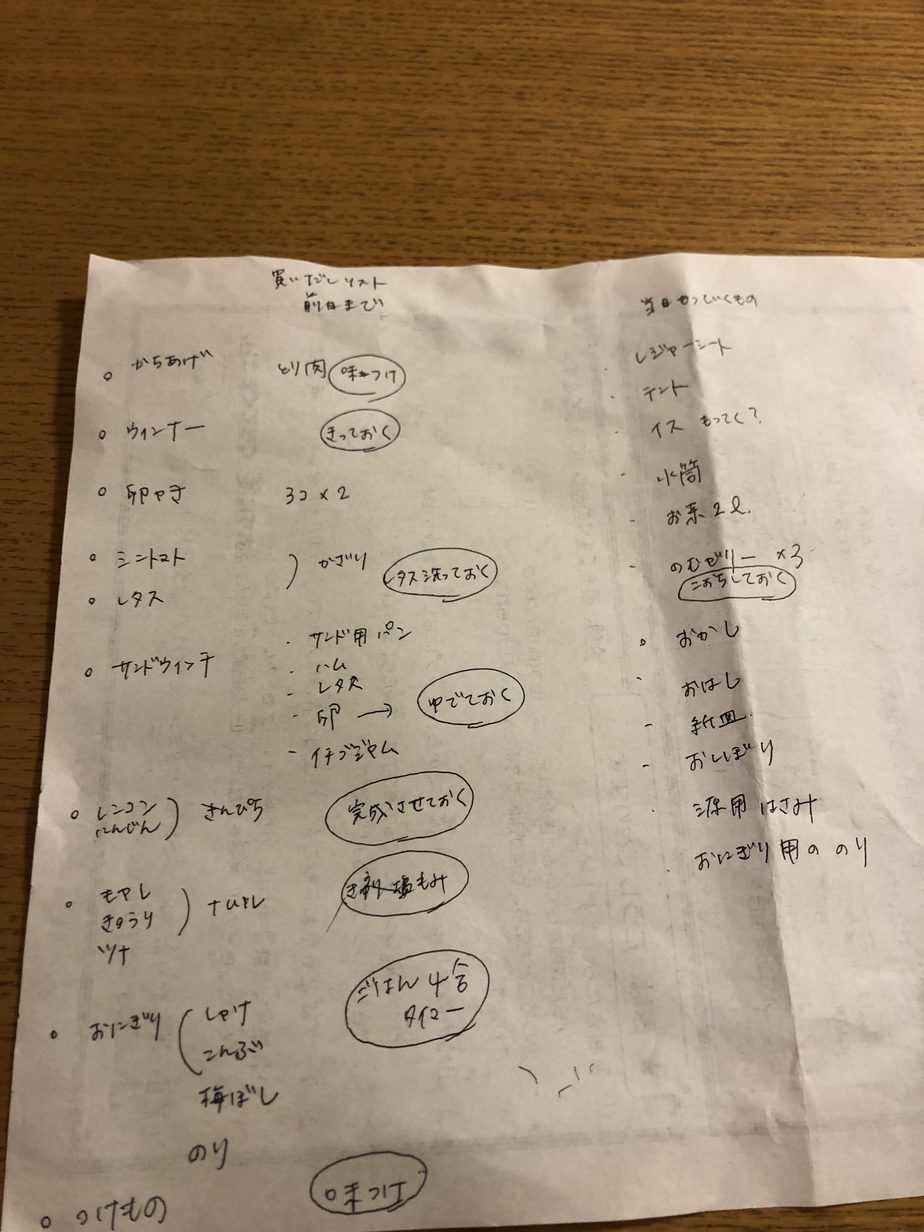 買いだしリスト
前日まで
からあげ とり肉 味つけ
ウィンナー きっておく
卵やき 3コ×2
レタス かざり レタス洗っておく
サンドウィッチ ・サンド用パン
-ハム
-レタス
-卵 → ゆでておく
-イチゴジャム
レンコン
にんじん きんぴら 完成させておく
もやし
きゅうり ナムル
ツナ
おにぎり しゃけ ごはん4合
こんぶ タイマー
梅ぼし
のり
つけもの 味つけ
当日もっていくもの
レジャーシート
テント
イス もってく?
水筒
お茶2ℓ.
のむゼリー ×3
こおらしておく
おかし
おはし
紙皿.
おしぼり
はさみ
おにぎり用ののり